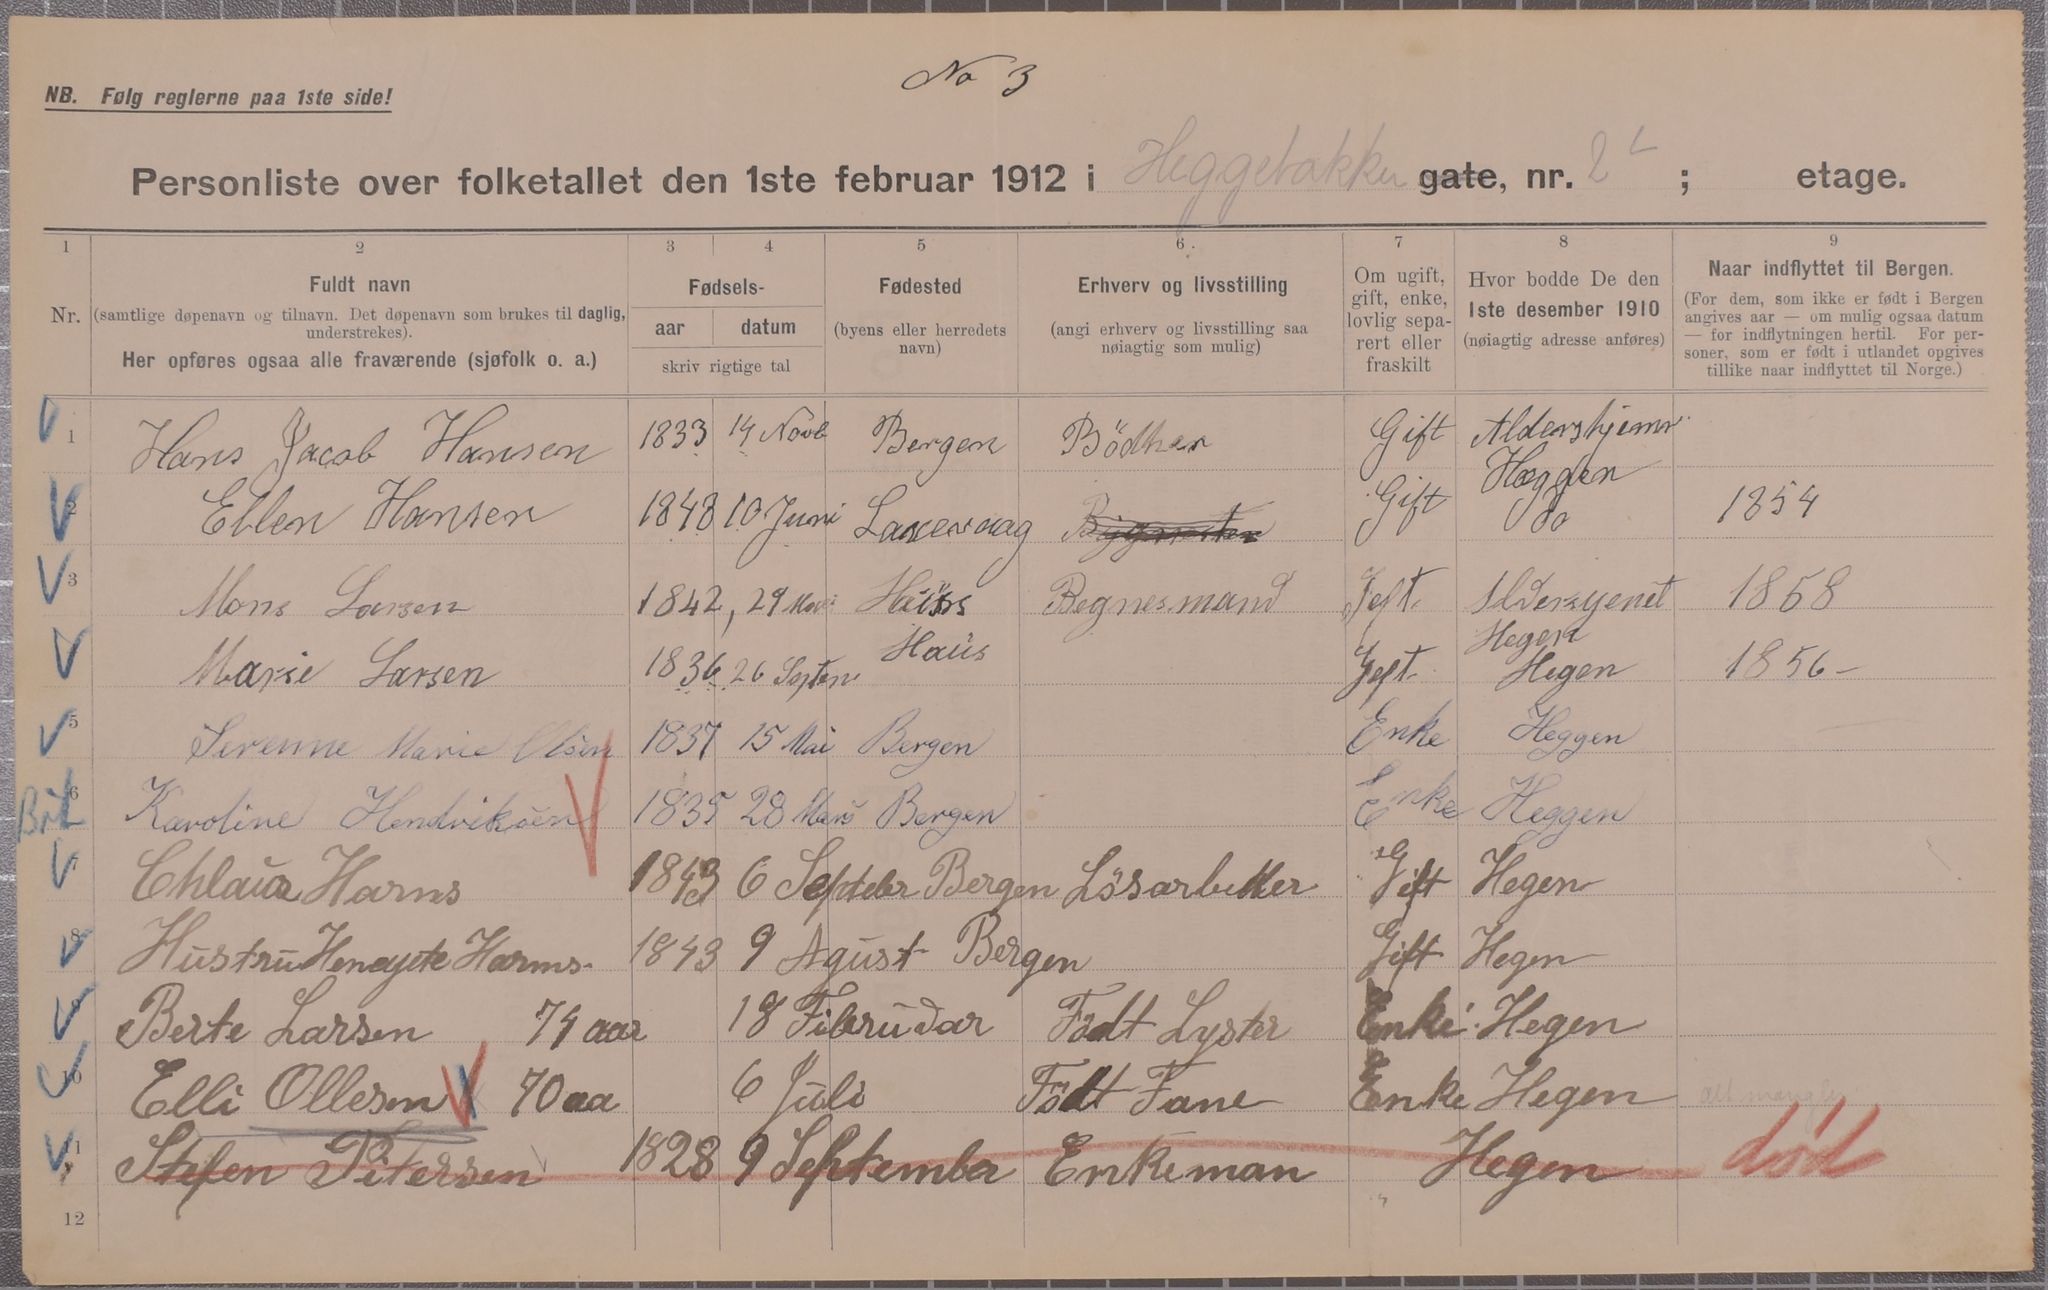 No 3
NB. Følg reglerne paa 1ste side!
Personliste over folketallet den 1ste februar 1912 i Heggebakken gate, nr. 2 ; etage.
1 2 3 4 5 6. 7 8 9
Nr.
Fuldt navn
(samtlige døpenavn og tilnavn. Det døpenavn som brukes til daglig,
understrekes).
Her opføres ogsaa alle fraværende (sjøfolk o. a.)
Fødsels-
aar datum
skriv rigtige tal
Fødested
(byens eller herredets
navn)
Erhverv og livsstilling
(angi erhverv og livsstilling saa
nøiagtig som mulig)
Om ugift,
gift, enke,
lovlig sepa-
rert eller
fraskilt
Hvor bodde De den
1ste desember 1910
(nøiagtig adresse anføres)
Naar indflyttet til Bergen.
(For dem, som ikke er født i Bergen
angives aar — om mulig ogsaa datum
— for indflytningen hertil. For per-
soner, som er født i utlandet opgives
tillike naar indflyttet til Norge.)
1 Hans Jacob Hansen 1833 14 Novb Bergen Bödker Gift Aldershjemr
Heggen
2 Ellen Hansen 1848 10 Juni Laxevaag Gift do 1854
3 Mons Larsen 1842, 29 Haus Begnesmand Geft. 1858
Hegen
Marie Larsen 1836 26 Septem Haüs Geft. Hegen 1856 —
5 Serenne Marie Olsen 1837 15 Mai Bergen Enke Heggen
6 Karoline Hendriksen 1835 28 Mars Bergen Enke Heggen
7 Harms 1843 6 Septebr Bergen Lösarbeider Gift Hegen
8 Hustru Harms. 1843 9 Agust Bergen Gift Hegen
9 Berte Larsen 74 aar 18 Födt Lyster Enke Hegen
10 Elli Ollesen 70 aa 6 Juli Födt Fane Enke Hegen
11 Stefen Pitersen 1828 9 September Enkeman Hegen død
12